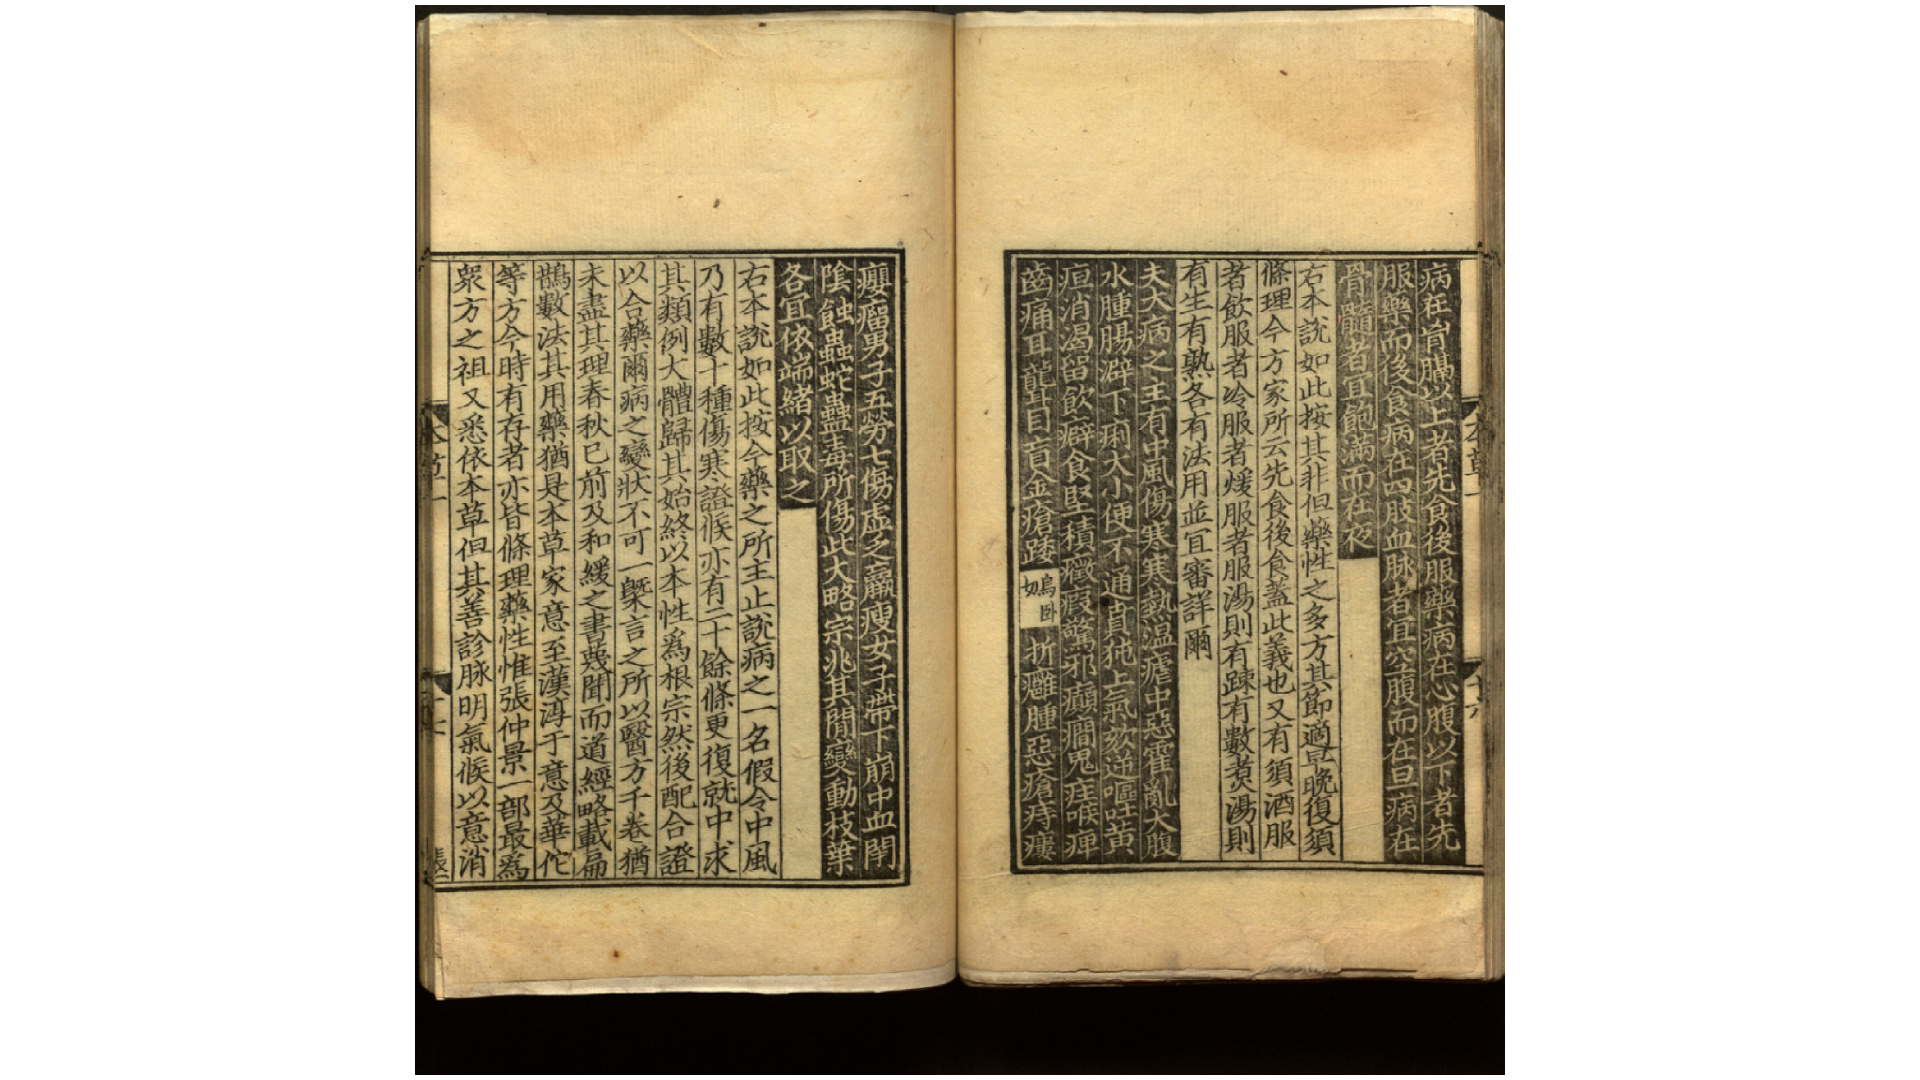 病在胷膈以上者先食後服藥病在心腹以下者先
服藥而後食病在四肢血脉者宜空腹而在旦病在
骨髓者宜飽滿而在夜
右本說如此按其非但藥性之多方其節適早晚復須
條理今方家所云先食後食蓋此義也又有須酒服
者飲服者冷服者煖服者服湯則有踈有數煑湯則
有生有熟各有法用並宜審詳爾
夫大病之主有中風傷寒寒熱溫瘧中惡霍亂大腹
水腫腸澼下痢大小便不通賁㹠上氣欬逆嘔吐黃
疸消渴留飲癖食堅積癥瘕驚邪癲癇鬼疰喉痺
齒痛耳聾目盲金瘡踒烏臥切折癰腫惡瘡痔瘻
本草一
十六
癭瘤男子五勞七傷虛乏羸瘦女子帶下崩中血閉
陰蝕蟲蛇蠱毒所傷此大略宗兆其閒變動枝葉
各宜依端緒以取之
右本說如此按今藥之所主止說病之一名假令中風
乃有數十種傷寒證候亦有二十餘條更復就中求
其類例大體歸其始終以本性爲根宗然後配合證
以合藥爾病之變狀不可一槩言之所以醫方千卷猶
未盡其理春秋已前及和緩之書蔑聞而道經略載扁
鵲數法其用藥猶是本草家意至漢淳于意及華佗
等方今時有存者亦皆條理藥性惟張仲景一部最爲
衆方之祖又悉依本草但其善診脉明氣候以意消
本草一
十七